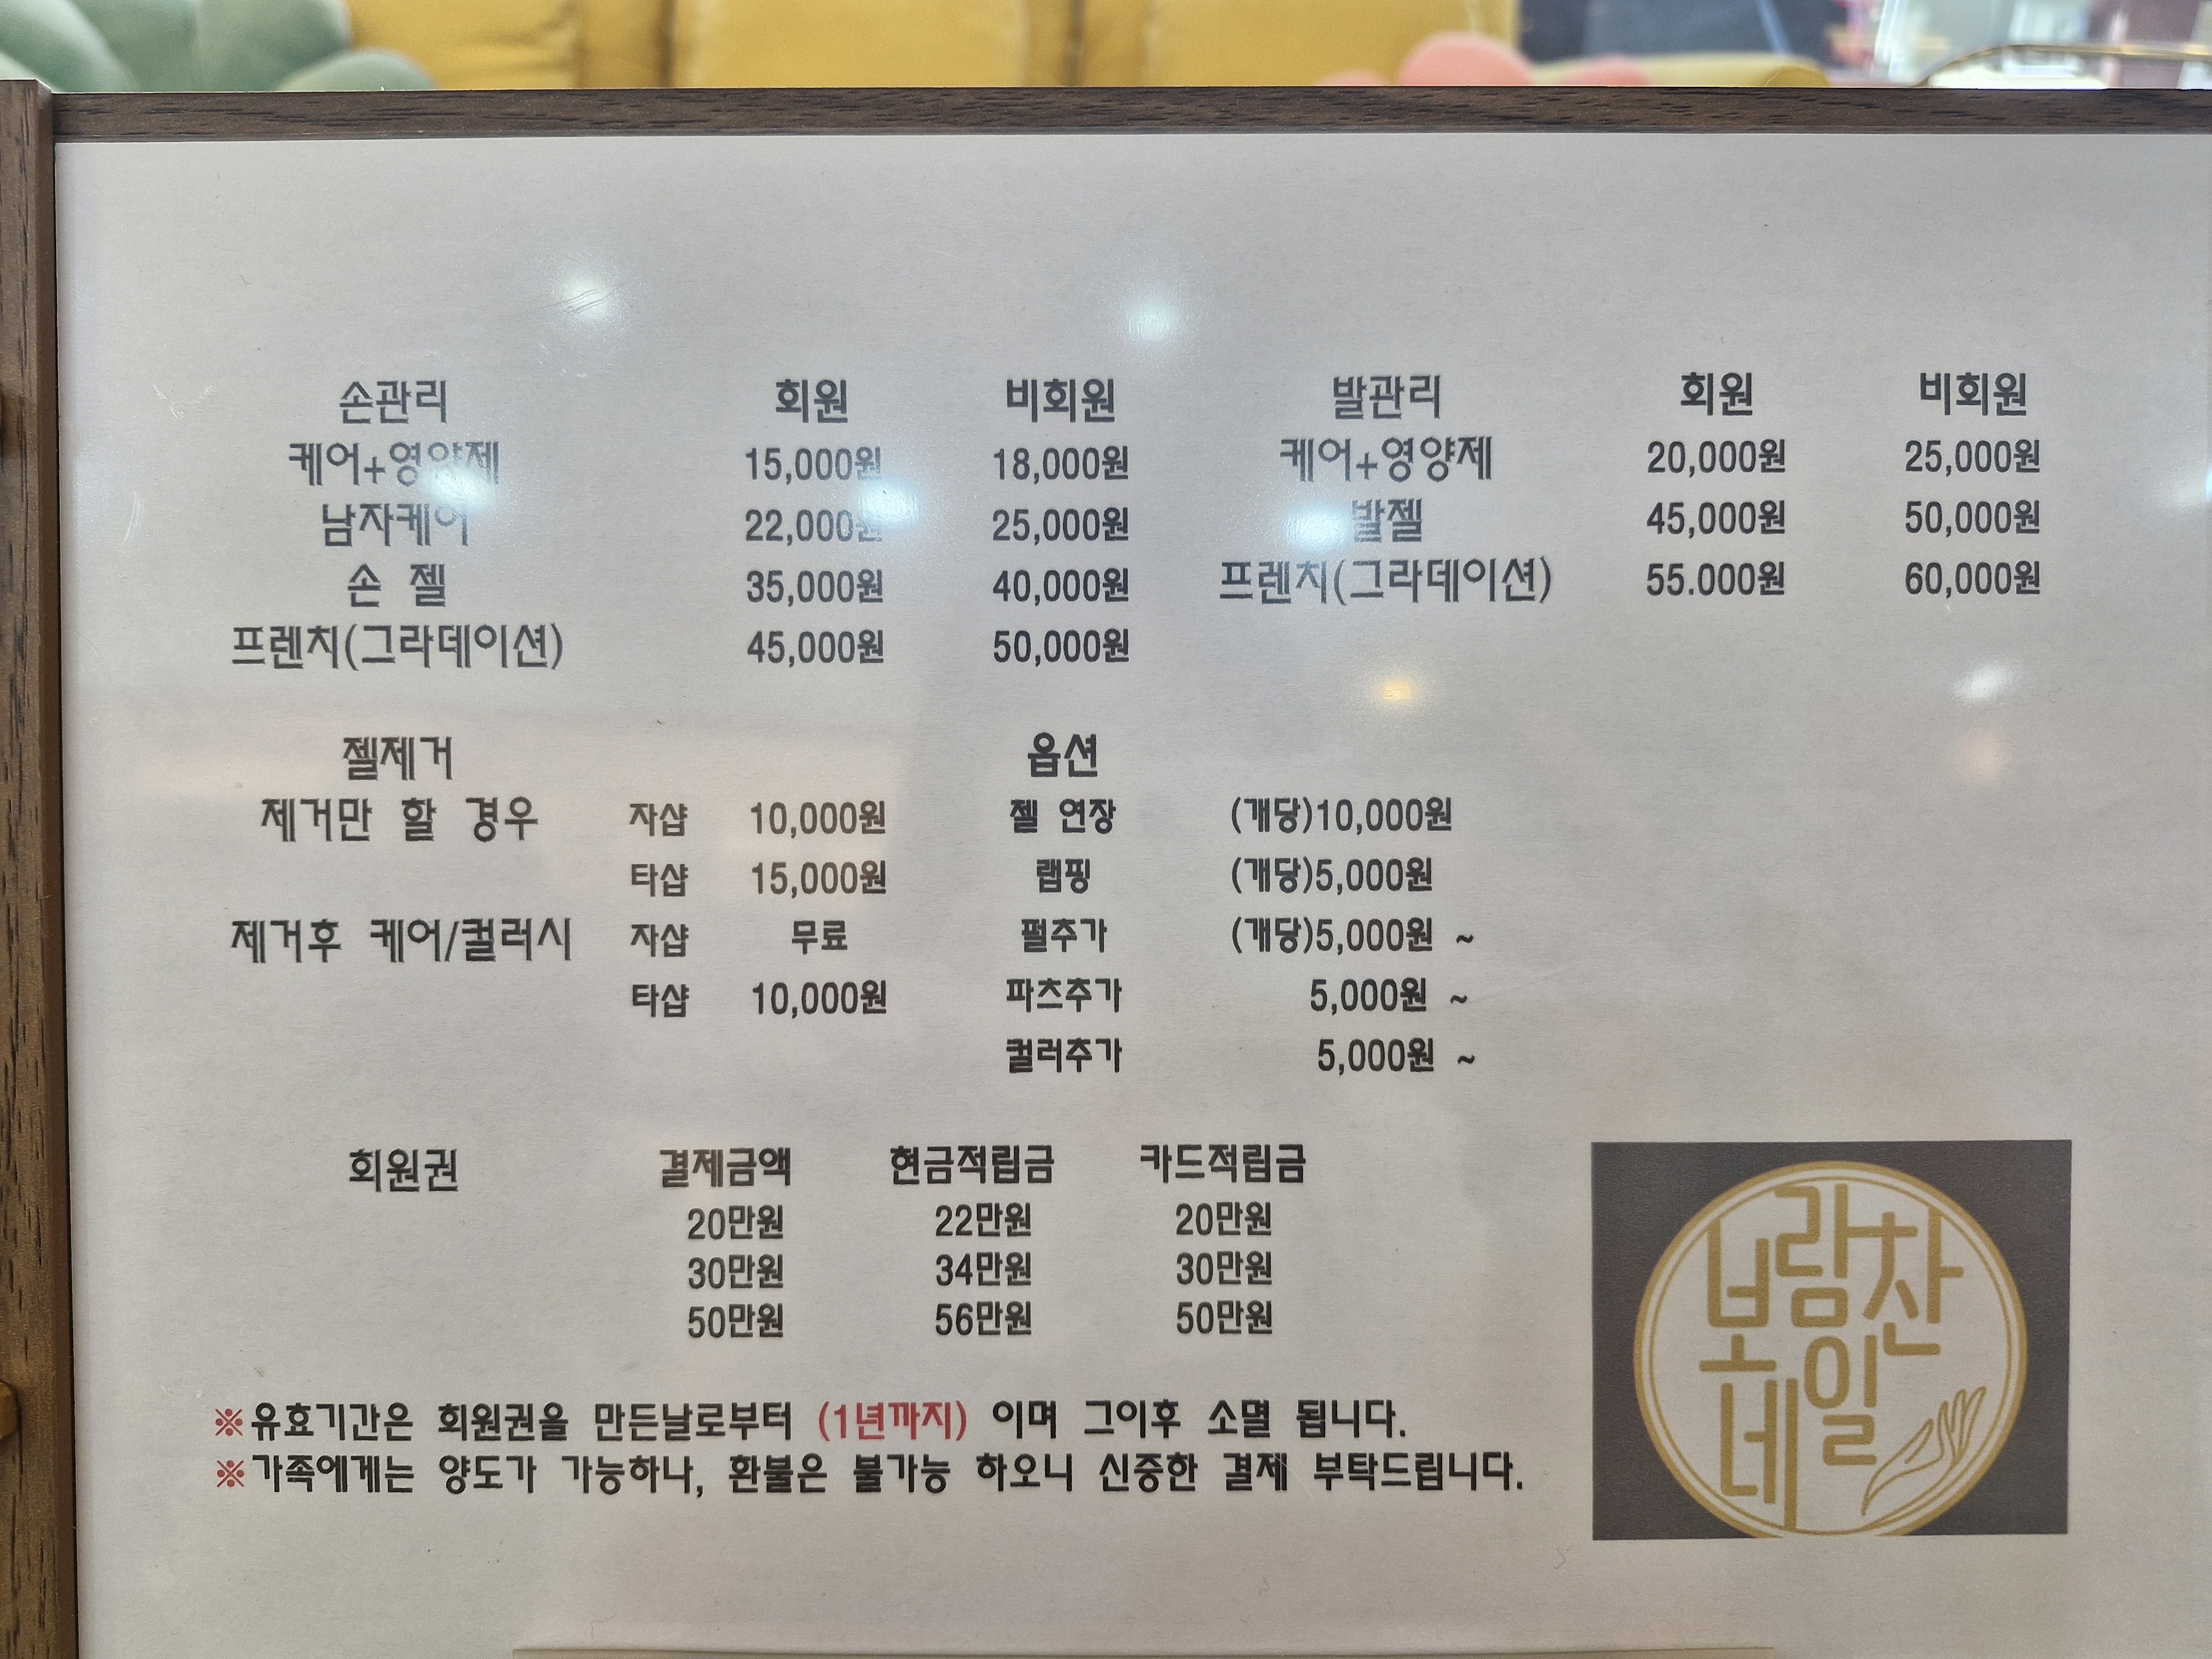 손관리 회원 비회원 발관리 회원 비회원
케어+영양제 15,000원 18,000원 케어+영양제 20,000원 25,000원
남자케어 22,000원 25,000원 발젤 45,000원 50,000원
손 젤 35,000원 40,000원 프렌치(그라데이션) 55.000원 60,000원
프렌치(그라데이션) 45,000원 50,000원
젤제거 옵션
제거만 할 경우 자샵 10,000원 젤 연장 (개당)10,000원
타샵 15,000원 랩핑 (개당)5,000원
제거후 케어/컬러시 자샵 무료 펄추가 (개당)5,000원 ~
타샵 10,000원 파츠추가 5,000원 ~
컬러추가 5,000원 ~
회원권 결제금액 현금적립금 카드적립금
20만원 22만원 20만원
30만원 34만원 30만원
50만원 56만원 50만원
※유효기간은 회원권을 만든날로부터 (1년까지) 이며 그이후 소멸 됩니다.
※가족에게는 양도가 가능하나, 환불은 불가능 하오니 신중한 결제 부탁드립니다.
보람찬
네일